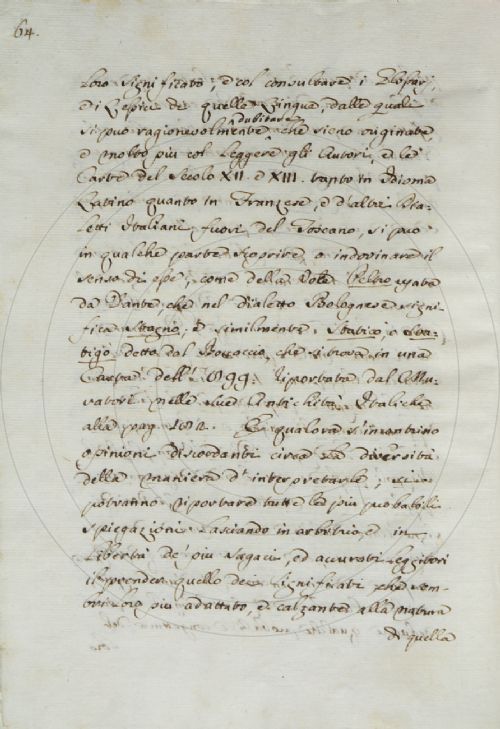 64.
loro significato; e col consultare i Glossarj,
e i Lessici di quelle Lingue, dalle quali
si può ragionevolmente dubitare che sieno originate
e molto più col leggere gli Autori, e le
Carte del Secolo XII. e XIII. tanto in Idioma
Latino quanto in Franzese, e d'altri Dia-
letti Italiani fuori del Toscano, si può
in qualche parte scoprire, o indovinare il
senso di esse, come della Voce Peltro usata
da Dante, che nel Dialetto Bolognese signi-
fica Stagno, e similmente, Statico, o Sta-
tigo detto dal Boccaccio, che si trova in una
Carta dell' 1099. riportata dal Mu-
ratori nelle sue Antichità Italiche
alla pag. 102. E qualora s'incontrino
opinioni discordanti circa la diversità
della maniera d'interpretarle, si
potranno riportare tutte le più probabili
spiegazioni lasciando in arbitrio, e in
libertà de' più sagaci, ed accurati Leggitori
il prender quello de' significati che sem-
brerà loro più adattato, e calzante alla natura
di quella